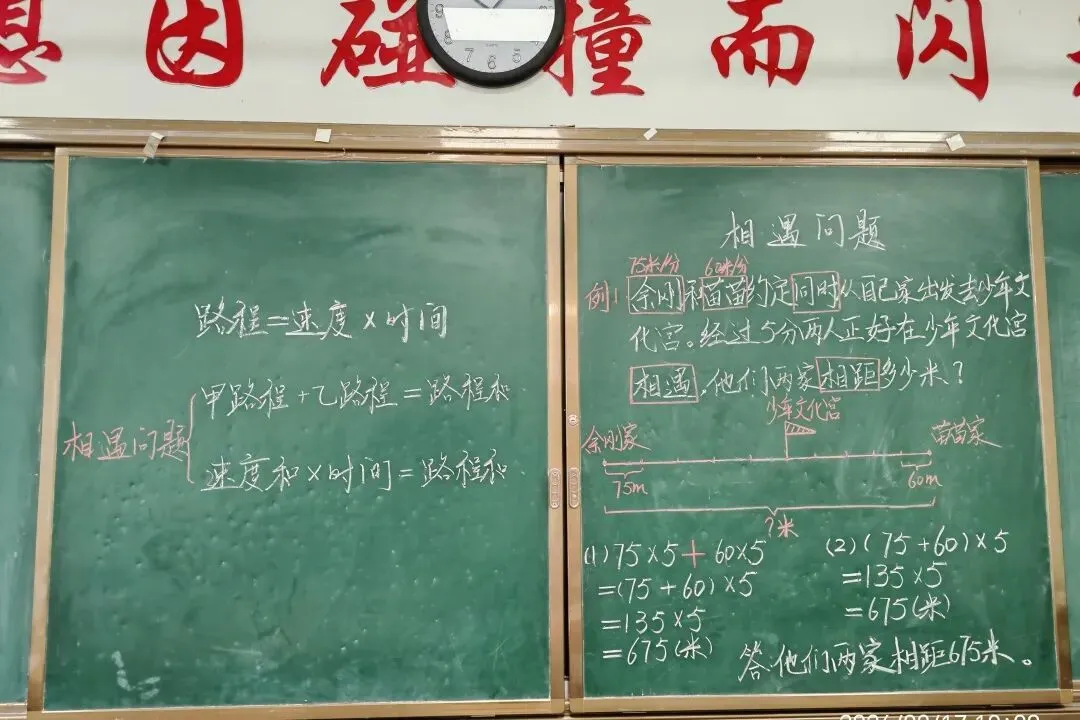 思因碰撞而闪
9 8 7 6 5
路程=速度×时间
甲路程+乙路程=路程和
相遇问题
速度和×时间=路程和
相遇问题
75米/分 60米/分
例1 余刚和苗苗约定同时从自己家出发去少年文
化宫。经过5分两人正好在少年文化宫
相遇,他们两家相距多少米?
少年文化宫
余刚家 苗苗家
75m 60m
?米
(1)75×5+60×5
=(75+60)×5
=135×5
=675(米)
(2)(75+60)×5
=135×5
=675(米)
答:他们两家相距675米。